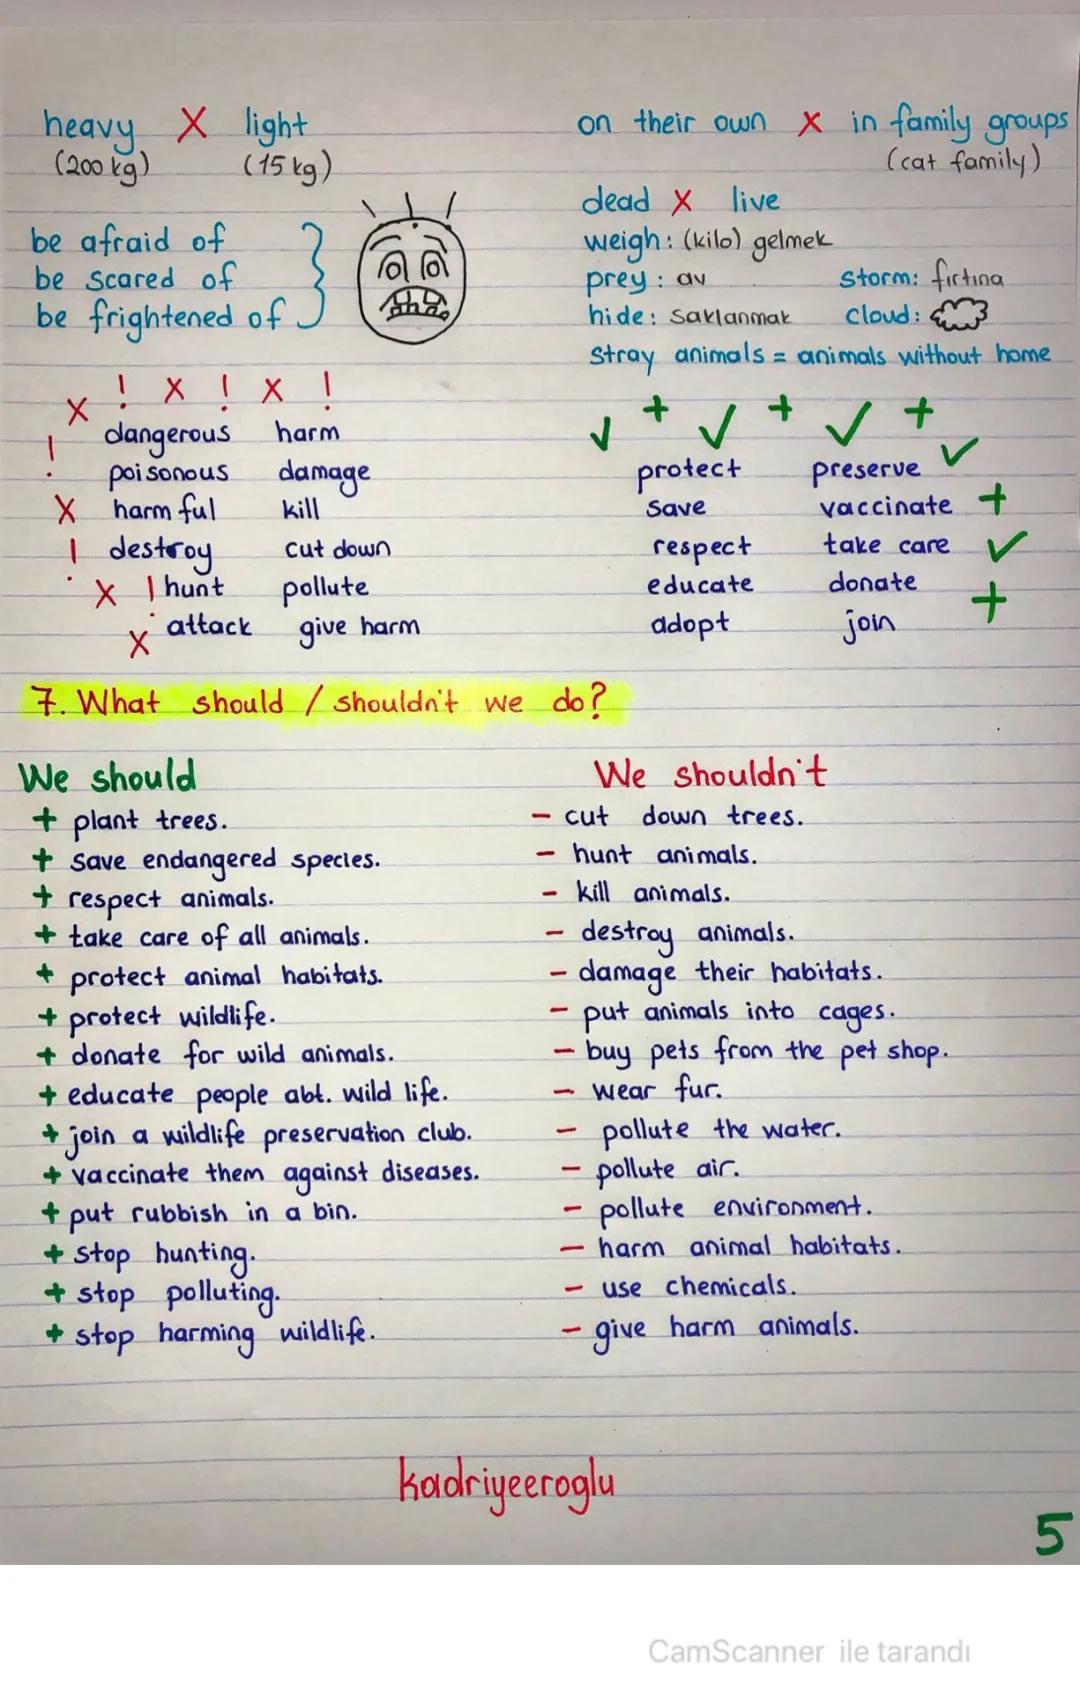 heavy X light
(200 kg) (15 kg)
on their own X in family groups
(cat family)
be afraid of
be scared of
be frightened of
dead X live
weigh: (kilo) gelmek
prey: av storm: fırtına
hide: saklanmak cloud:
Stray animals = animals without home
X ! X ! X !
dangerous harm
! poisonous damage
X harmful kill
! destroy cut down
X ! hunt pollute
X attack give harm
✓ + ✓ + ✓ +
protect preserve ✓
save vaccinate +
respect take care ✓
educate donate +
adopt join
7. What should / shouldn't we do?
We should
+ plant trees.
+ save endangered species.
+ respect animals.
+ take care of all animals.
+ protect animal habitats.
+ protect wildlife.
+ donate for wild animals.
+ educate people abt. wild life.
+ join a wildlife preservation club.
+ vaccinate them against diseases.
+ put rubbish in a bin.
+ stop hunting.
+ stop polluting.
+ stop harming wildlife.
We shouldn't
- cut down trees.
- hunt animals.
- kill animals.
- destroy animals.
- damage their habitats.
- put animals into cages.
- buy pets from the pet shop.
- wear fur.
- pollute the water.
- pollute air.
- pollute environment.
- harm animal habitats.
- use chemicals.
- give harm animals.
kadriyeeroglu
5
CamScanner ile tarandı